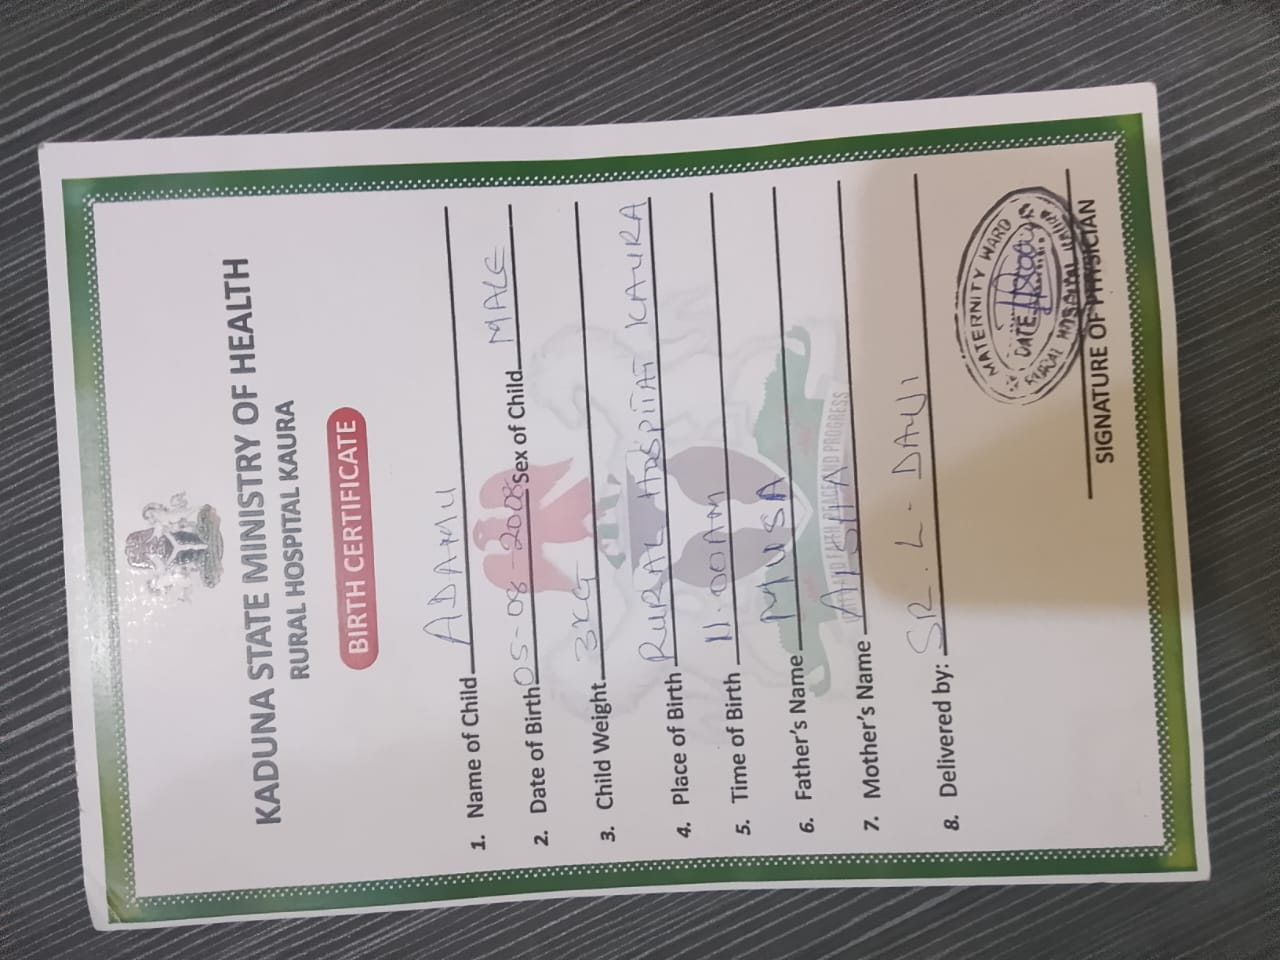 KADUNA STATE MINISTRY OF HEALTH
RURAL HOSPITAL KAURA
BIRTH CERTIFICATE
1. Name of Child ADAMU
2. Date of Birth 05-08-2008 Sex of Child MALE
3. Child Weight 3KG
4. Place of Birth RURAL HOSPITAL KAURA
5. Time of Birth 11.00AM
6. Father's Name MUSA
7. Mother's Name AISHA
8. Delivered by: SR. L. DAUJI
MATERNITY WARD
DATE
RURAL HOSPITAL
SIGNATURE OF PHYSICIAN
AND FAITH, PEACE AND PROGRESS